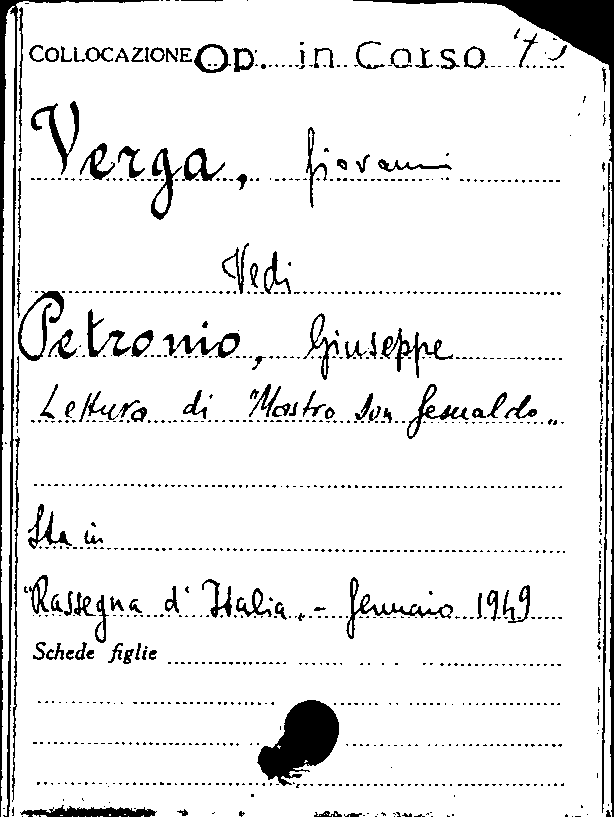 COLLOCAZIONE Op. in Corso
Verga, Giovanni
Vedi
Petronio, Giuseppe
Lettura di "Mastro Don Gesualdo„
Sta in
"Rassegna d'Italia„ - Gennaio 1949
Schede figlie